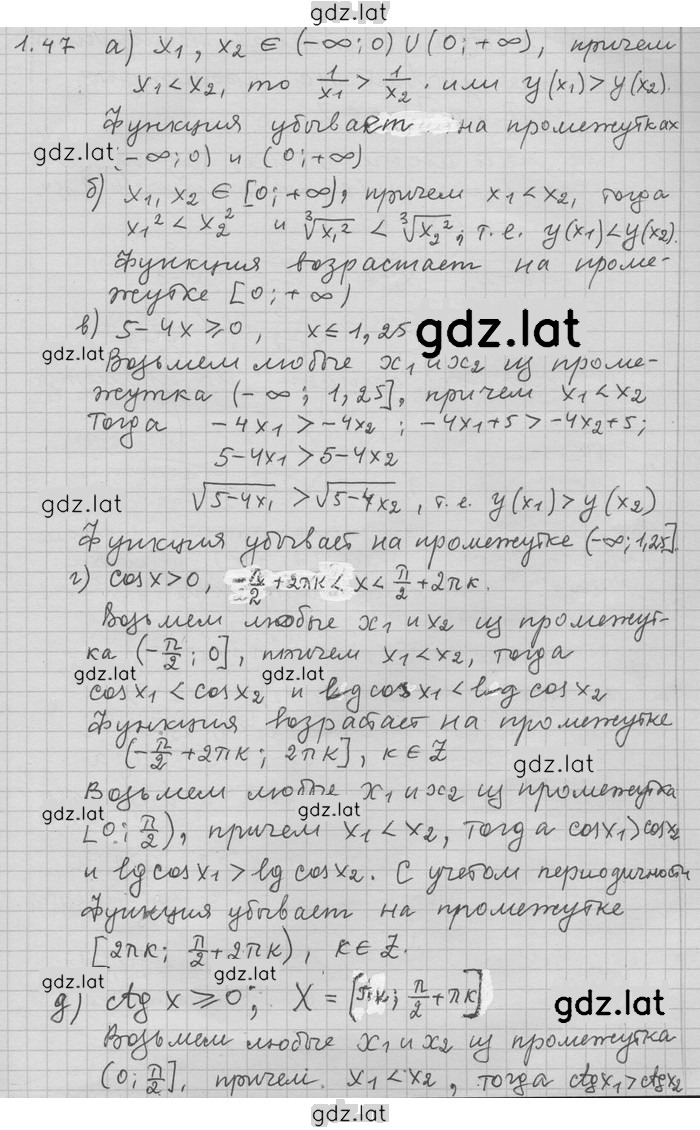 gdz.lat
1.47 а) x₁, x₂ ∈ (-∞; 0) ∪ (0; +∞), причем
x₁ < x₂, то 1/x₁ > 1/x₂. или y(x₁) > y(x₂).
Функция убывает на промежутках
gdz.lat
(-∞; 0) и (0; +∞)
б) x₁, x₂ ∈ [0; +∞), причем x₁ < x₂, тогда
x₁² < x₂² и ∛x₁² < ∛x₂²; т.е. y(x₁) < y(x₂).
Функция возрастает на проме-
жутке [0; +∞)
gdz.lat
в) 5-4x ≥ 0, x ≤ 1,25
gdz.lat
Возьмем любые x₁ и x₂ из проме-
жутка (-∞; 1,25], причем x₁ < x₂
Тогда -4x₁ > -4x₂; -4x₁+5 > -4x₂+5;
5-4x₁ > 5-4x₂
gdz.lat
√(5-4x₁) > √(5-4x₂), т.е. y(x₁) > y(x₂)
Функция убывает на промежутке (-∞; 1,25].
г) cos x > 0, -π/2 + 2πk < x < π/2 + 2πk.
Возьмем любые x₁ и x₂ из промежут-
ка (-π/2; 0], причем x₁ < x₂, тогда
gdz.lat
gdz.lat
cos x₁ < cos x₂ и lg cos x₁ < lg cos x₂
Функция возрастает на промежутке
(-π/2 + 2πk; 2πk], k ∈ Z
gdz.lat
Возьмем любые x₁ и x₂ из промежутка
gdz.lat
gdz.lat
[0; π/2), причем x₁ < x₂, тогда cos x₁ > cos x₂
и lg cos x₁ > lg cos x₂. С учетом периодичности
функция убывает на промежутке
[2πk; π/2 + 2πk), k ∈ Z.
gdz.lat
gdz.lat
gdz.lat
д) ctg x ≥ 0; X = (πk; π/2 + πk]
Возьмем любые x₁ и x₂ из промежутка
(0; π/2], причем x₁ < x₂, тогда ctg x₁ > ctg x₂
gdz.lat